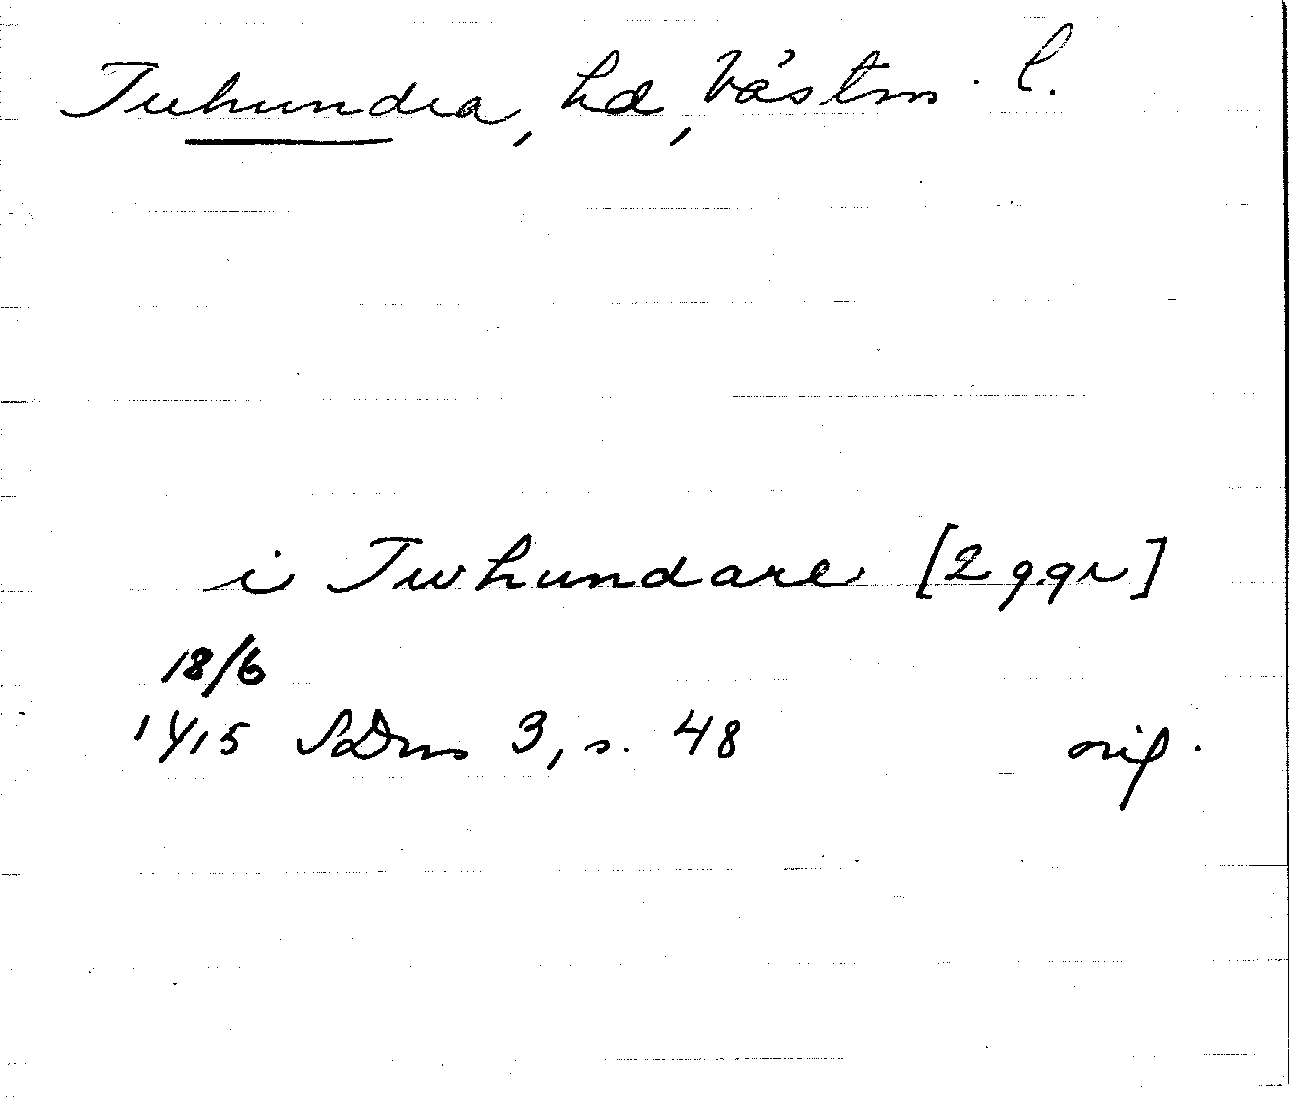 Tuhundra, hd, Västm. l.
i Twhundare [2 ggr]
18/6
1415 SDns 3, s. 48 orig.